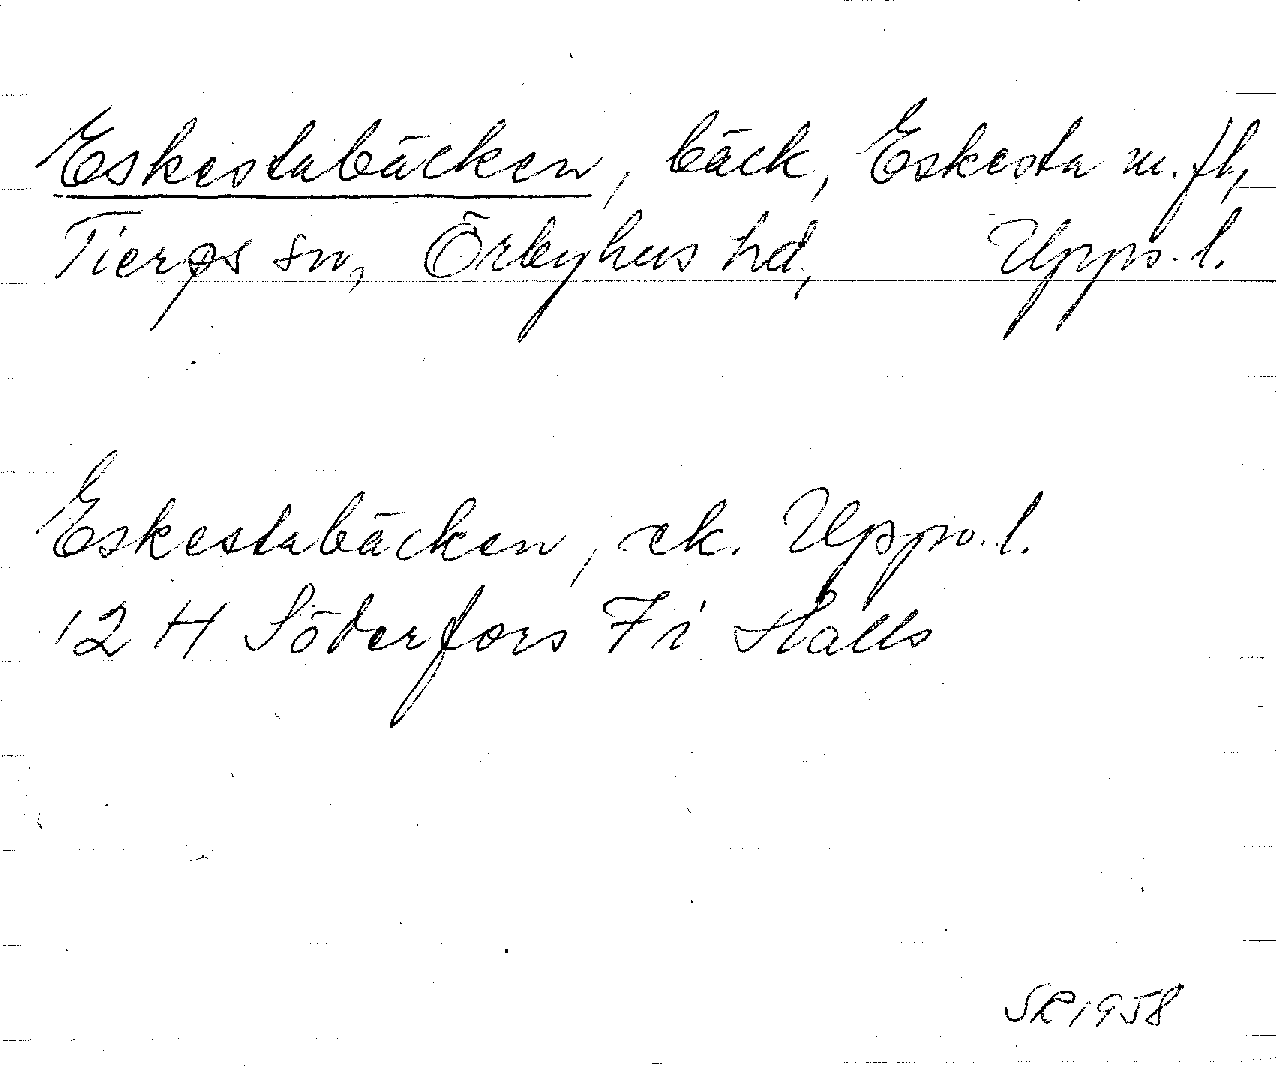 Eskestabäcken, bäck, Eskesta m. fl,
Tierps sn, Örbyhus hd, Upps. l.
Eskestabäcken, ek. Upps. l.
12 H Söderfors 7 i Halls
SR 1958